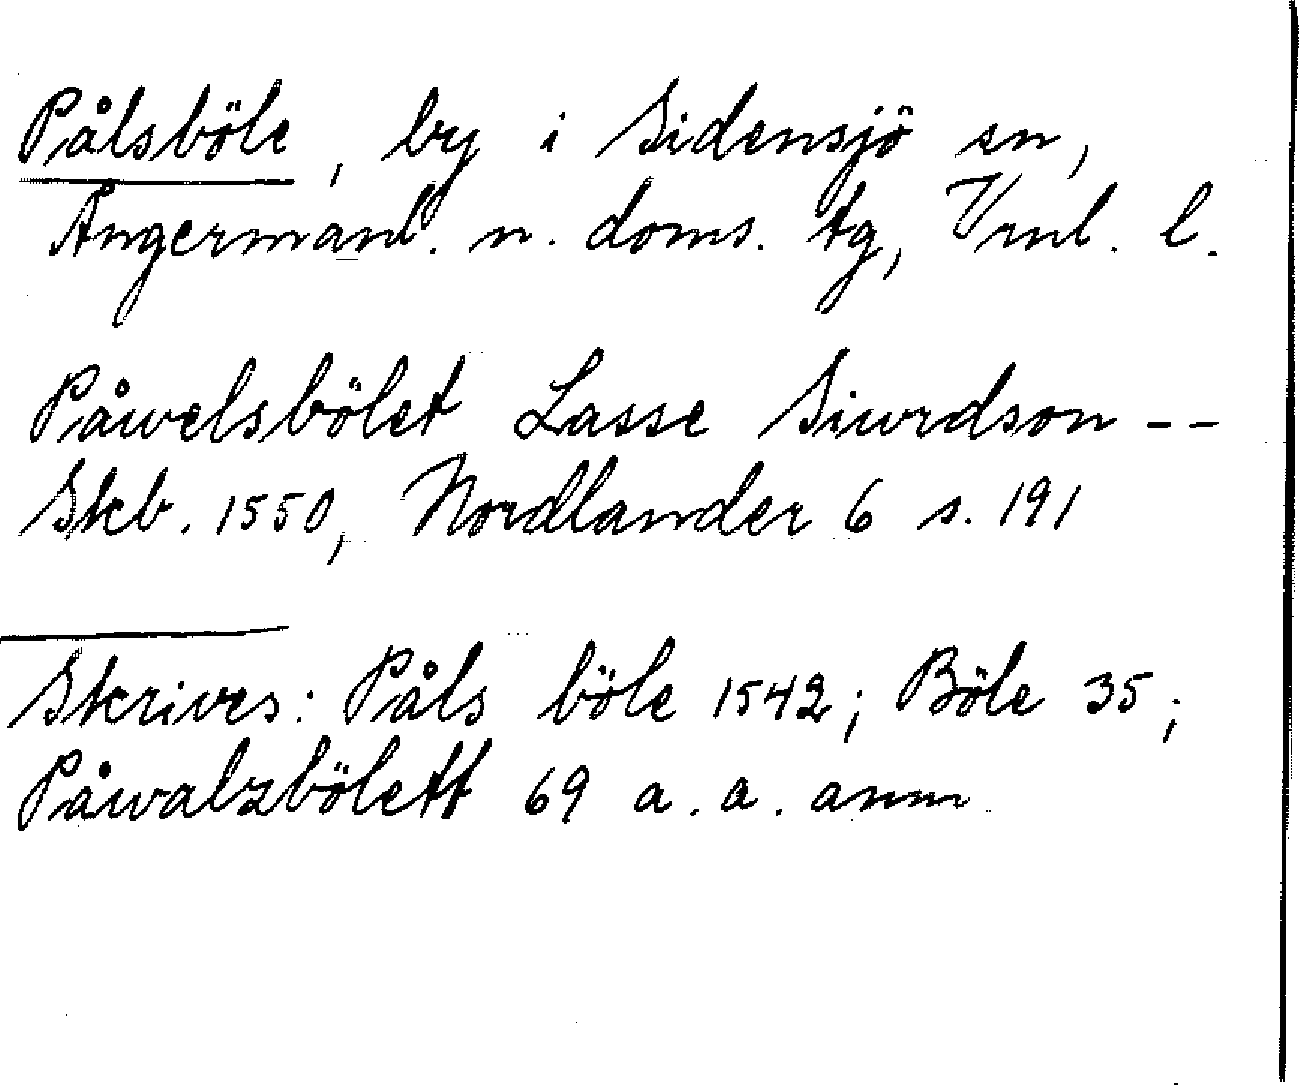 Pålsböle, by i Sidensjö sn,
Ångermanl. n. doms. tg, Vrnl. l.
Påwelsbölet Lasse Siwrdson --
Skb. 1550, Nordlander 6 s. 191
Skrives: Påls böle 1542; Böle 35;
Påwalzbölett 69 a. a. anm